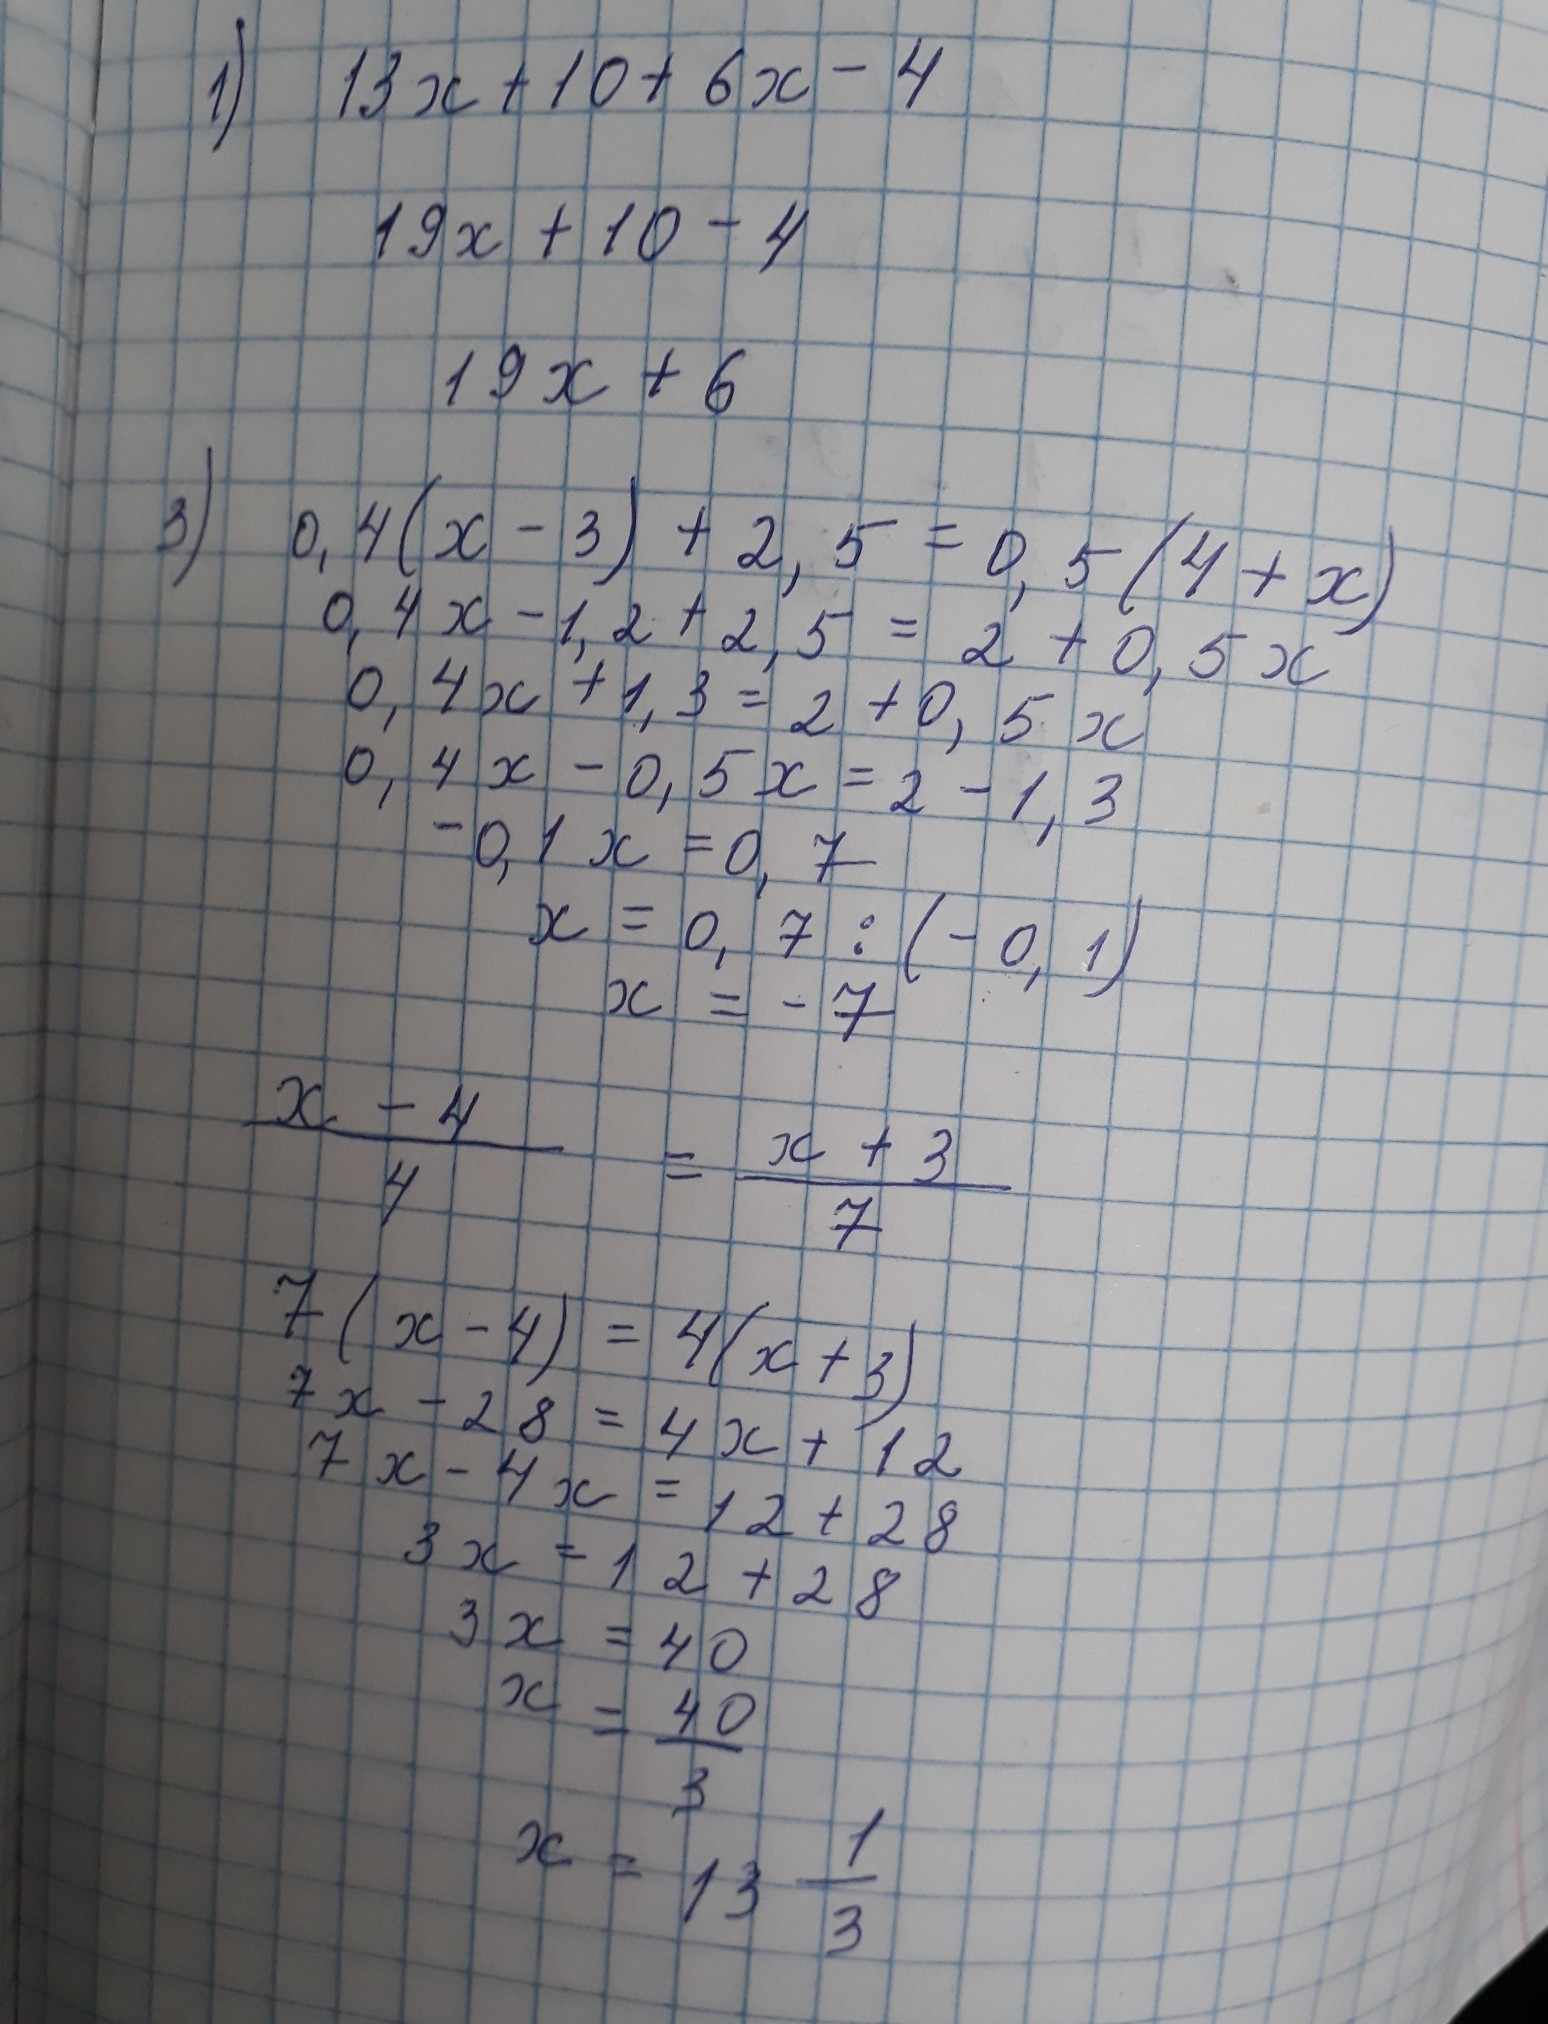 1) 13x + 10 + 6x - 4
19x + 10 - 4
19x + 6
3) 0,4(x - 3) + 2,5 = 0,5(4 + x)
0,4x - 1,2 + 2,5 = 2 + 0,5x
0,4x + 1,3 = 2 + 0,5x
0,4x - 0,5x = 2 - 1,3
-0,1x = 0,7
x = 0,7 : (-0,1)
x = -7
x - 4
4
=
x + 3
7
7(x - 4) = 4(x + 3)
7x - 28 = 4x + 12
7x - 4x = 12 + 28
3x = 12 + 28
3x = 40
x = 40
3
x = 13 1
3